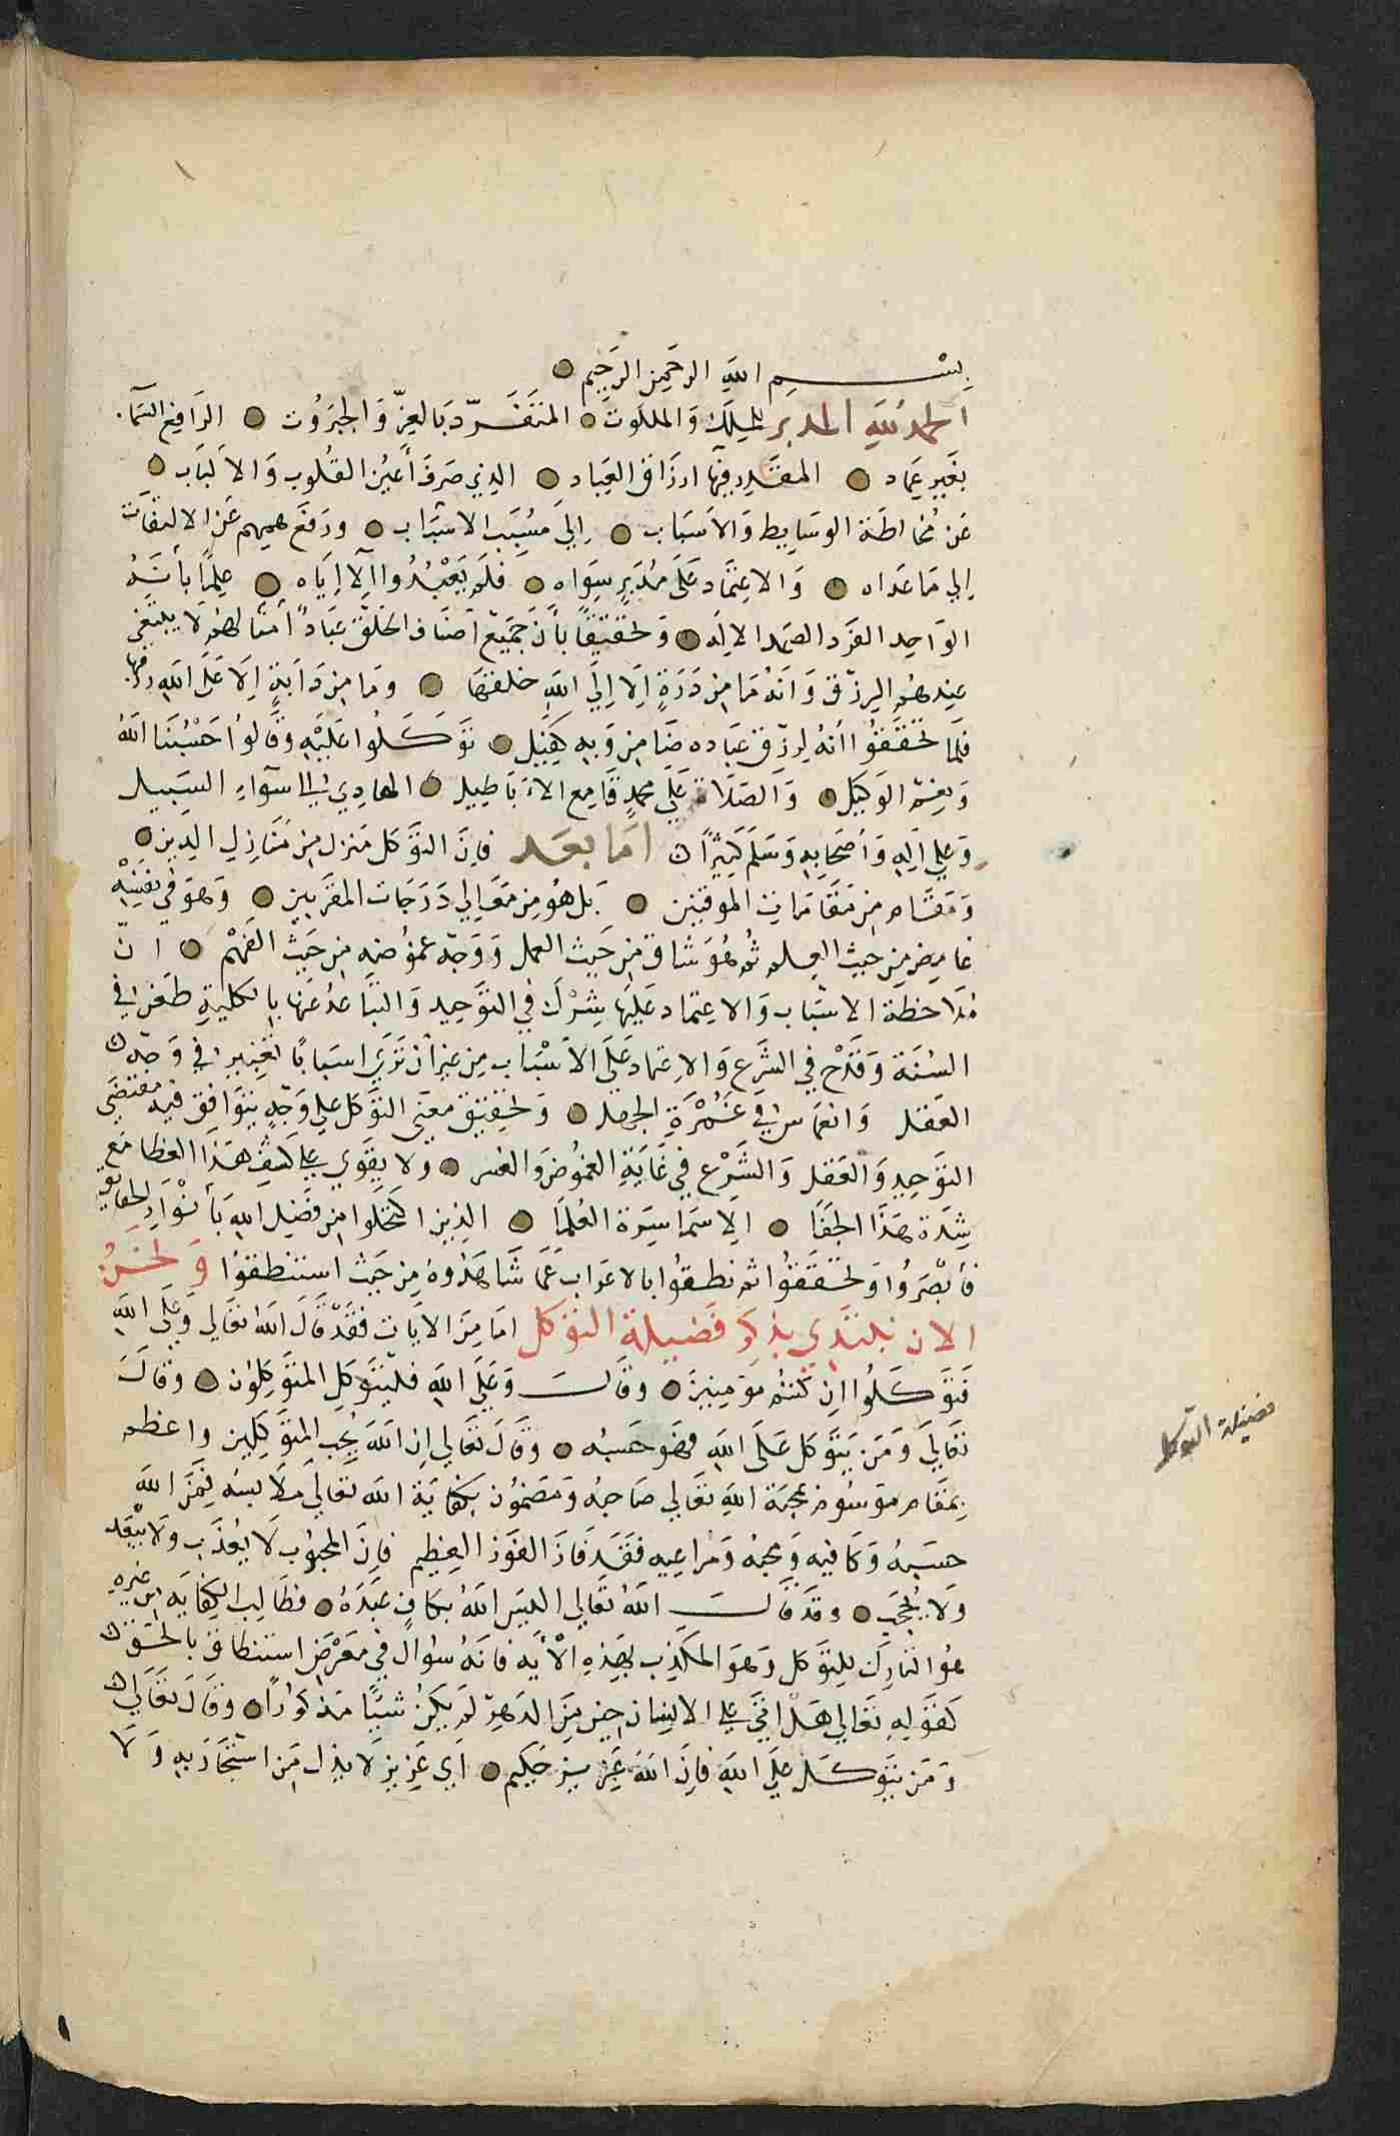 بسم الله الرحمن الرحيم
الحمد لله المدبر للملك والملكوت المتفرد بالعز والجبروت الرافع السما
بغير عماد المقدر فيها ارزاق العباد الذي صرف أعين القلوب والالباب
عن مخاطة الوسايط والاسباب الى مسبب الاسباب ورفع هممهم عن الالتفات
الي ما عداه والاعتماد على مدبر سواه فلم يعبدوا الا اياه علما بأنه
الواحد الفرد الصمد الاله وتحقيقا بأن جميع اصناف الخلق عباد امثالهم لا يبتغى
عندهم الرزق وانه ما من درة الا إلى الله خلقتها وما من دابة الا على الله رزقها
فلما تحققوا أنه لرزق عباده ضامن وبه كفيل توكلوا عليه وقالوا حسبنا الله
ونعم الوكيل والصلاة على محمد قامع الاباطيل الهادي الى سواء السبيل
وعلي اله وأصحابه وسلم كثيرا اما بعد فان التوكل منزل من منازل الدين
ومقام من مقامات الموقنين بل هو من معالي درجات المقربين وهو في نفسه
غامض من حيث العلم ثم هو شاق من حيث العمل ووجه غموضه من حيث الفهم ان
ملاحظة الاسباب والاعتماد عليها شرك في التوحيد والتباعد عنها بالكلية طعن في
السنة وقدح في الشرع والاعتماد على الأسباب من غير أن ترى اسبابا تغيير في وجه
العقل وانغماس في غمرة الجهل وتحقيق معنى التوكل على وجه يتوافق فيه مقتضى
التوحيد والعقل والشرع في غاية الغموض والعسر ولا يقوي على كشف هذا الغطا مع
شدة هذا الخفا الا سماسرة العلما الذين اكتحلوا من فضل الله بأنوار الحقايق
فأبصروا وتحققوا ثم نطقوا بالاعراب عما شاهدوه من حيث استنطقوا ونحن
الان نبتدي بذكر فضيلة التوكل اما من الايات فقد قال الله تعالي وعلى الله
فتوكلوا ان كنتم مؤمنين وقال وعلى الله فليتوكل المتوكلون وقال
تعالى ومن يتوكل على الله فهو حسبه وقال تعالي ان الله يحب المتوكلين واعظم
بمقام موسوم بمحبة الله تعالي صاحبه ومضمون بكفاية الله تعالى ملابسه فمن الله
حسبه وكافيه ومحبه ومراعيه فقد فاز الفوز العظيم فان المحبوب لا يعذب ولا يبعد
ولا يحجب وقد قال الله تعالي اليس الله بكاف عبده فطالب الكفايه من غيره
هو التارك للتوكل وهو المكذب بهذه الأيه فانه سوال في معرض استنطاق بالحق
كقوله تعالي هل أتى على الانسان حين من الدهر لم يكن شيئا مذكورا وقال تعالى
ومن يتوكل على الله فان الله عزيز حكيم اي عزيز لا يذل من استجار به ولا
فضيلة التوكل